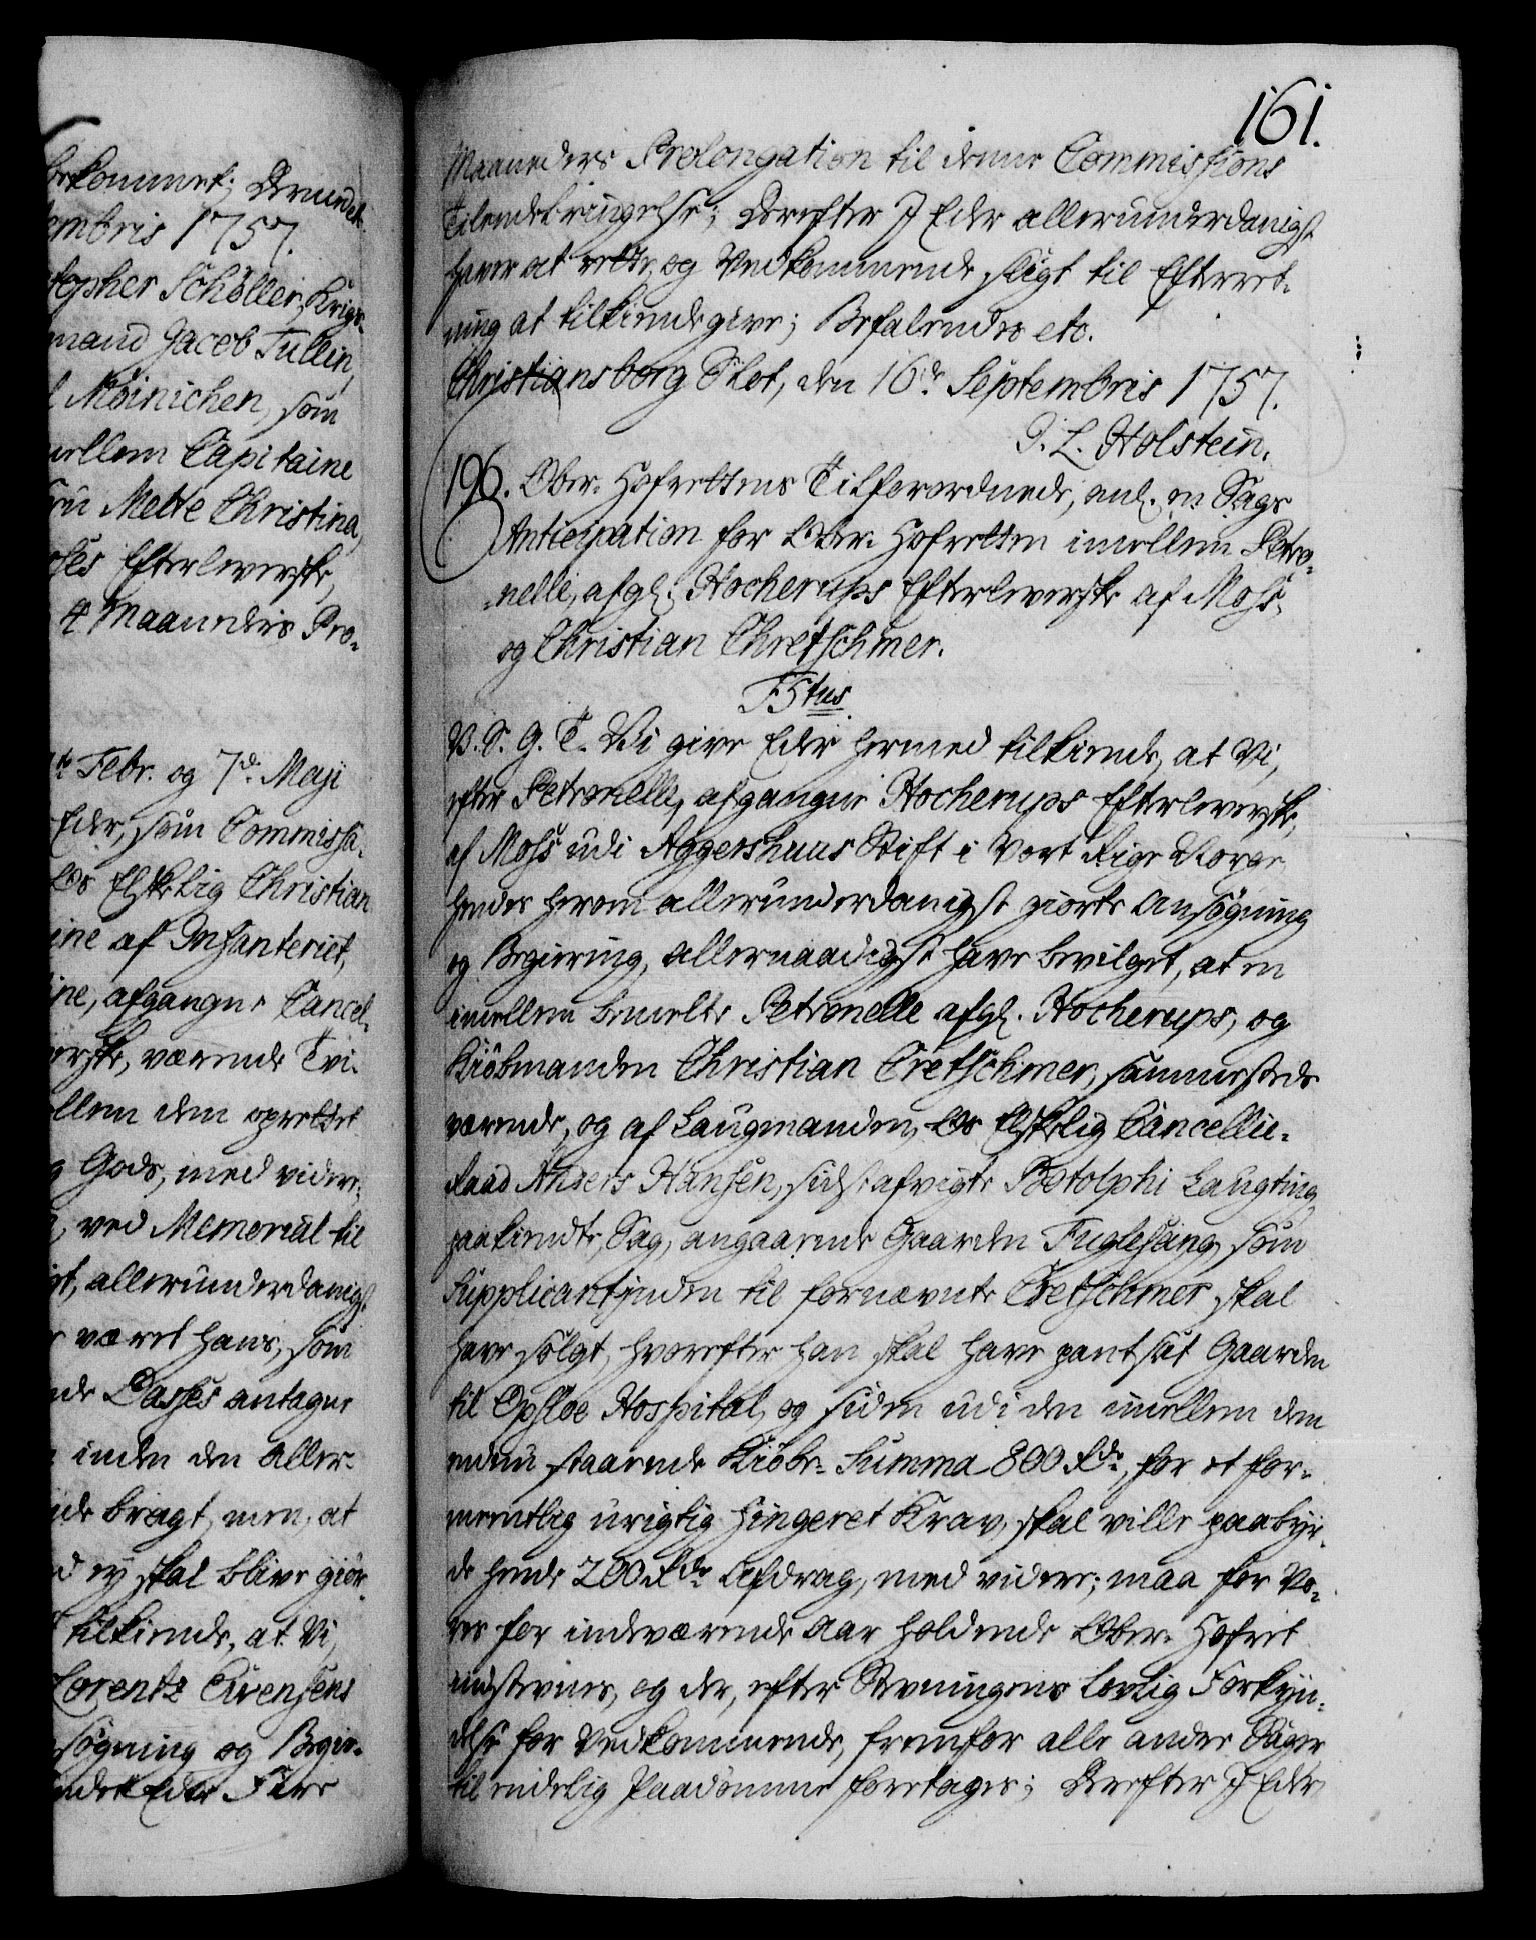 bekommet; Grundet
embris 1757.
topher Schøller, Krigs-
mand Jacob Tullin,
Møinichen, som
mellem Capitaine
Mette Christina,
Efterleverske,
4 Maaneders Pro-
Febr. og 7de Maji
Eder, som Commissa-
Os Elskelig Christian
ine af Infanteriet,
ine, afgangne Cancel-
erske, værende Tvi-
ellem dem oprettet
g Gods, med videre,
, ved Memorial til
gt, allerunderdanigst
været hans, som
de Dasses antagne
inden den Aller-
de bragt, men, at
ey skal blive giør
tilkiende, at Vi,
Lorentz Arensens
søgning og Begie-
Eder Fire
161.
Maaneders Prolongation til denne Commissions
Tilendebringelse; Derefter I Eder allerunderdanigst
haver at rette, og Vedkommende sligt til Efterret-
ning at tilkiendegive; Befalendes etc.
Christiansborg Slot, den 16de Septembris 1757.
J. L. Holstein.
196. Ober-Hofrettens Tilforordnede, anl. en Sags
Anticipation for Ober-Hofretten imellem Petro-
nelle, afgl. Hocherups Efterleverske af Moss,
og Christian Chretschmer.
F5tus.
V. S. G. T. Vi give Eder hermed tilkiende, at Vi,
efter Petronelle, afgangne Hocherups Efterleverske,
af Moss udi Aggershuus Stift i Vort Rige Norge
hendes herom allerunderdanigst giorte Ansøgning
og Begiering, allernaadigst have bevilget, at en
imellem bemelte Petronelle afgl. Hocherups, og
Kiøbmanden Christian Cretschmer, sammesteds
værende, og af Laugmanden, Os Elskelig Cancellie-
Raad Anders Hansen, sidstafvigte Botolphi Laugting,
paakiendte Sag, angaaende Gaarden Fuglesang, som
Supplicantinden til fornævnte Cretschmer skal
have solgt, hvorefter han skal have pantsat Gaarden
til Opsloe Hospital, og siden udi den imellem dem
endnu staaende Kiøbe-Summa 800 Rdr, for et for-
meentlig urigtig fingeret Krav, skal ville paabyr-
de hende 200 Rdr Afdrag, med videre; maa for Vo-
res for indeværende Aar holdende Ober-Hofret
indstevnes, og der, efter Stevningens lovlig Forkyn-
delse for Vedkommende, fremfor alle andre Sager
til endelig Paadømme foretages; Derefter I Eder